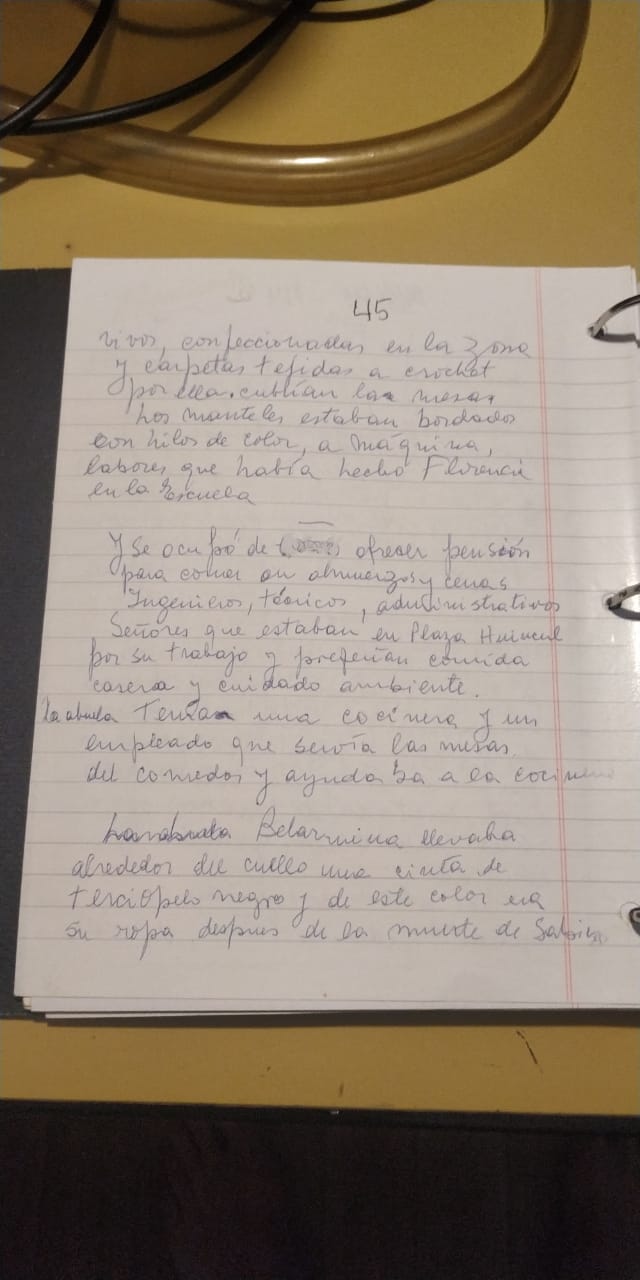 45
vivos, confeccionadas en la zona
y carpetas tejidas a crochet
por ella. cubrían las mesas
Los manteles estaban bordados
con hilos de color, a máquina,
labores que había hecho Florencia
en la Escuela
Y se ocupó de ofrecer pensión
para comer en almuerzos y cenas
Ingenieros, técnicos, administrativos
Señores que estaban en Plaza Huincul
por su trabajo y preferían comida
casera y cuidado ambiente.
La abuela Tenía una cocinera y un
empleado que servía las mesas
del comedor y ayudaba a la cocinera
Belarmina llevaba
alrededor del cuello una cinta de
terciopelo negro y de este color era
su ropa despues de la muerte de Sabino